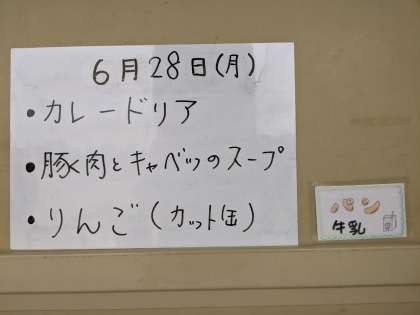 6月28日(月)
・カレードリア
・豚肉とキャベツのスープ
・りんご(カット缶)
パン
牛乳